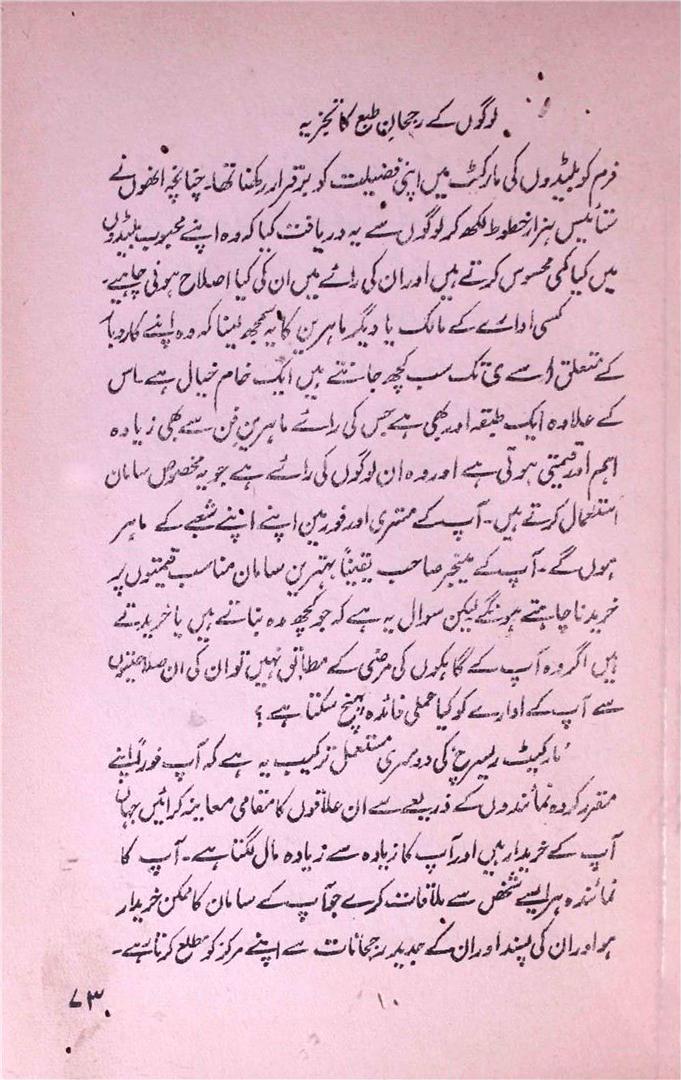 لوگوں کے رجحانِ طبع کا تجزیہ
فرم کو بلیڈوں کی مارکٹ میں اپنی فضیلت کو برقرار رکھنا تھا۔ چنانچہ انھوں نے
ستائیس ہزار خطوط لکھ کر لوگوں سے یہ دریافت کیا کہ وہ اپنے محبوب بلیڈوں
میں کیا کمی محسوس کرتے ہیں اور ان کی رائے میں ان کی کیا اصلاح ہونی چاہیے۔
کسی ادارے کے مالک یا دیگر ماہرین کا یہ سمجھ لینا کہ وہ اپنے کاروبار
کے متعلق اے سے ی تک سب کچھ جانتے ہیں ایک خام خیال ہے۔ اس
کے علاوہ ایک طبقہ اور بھی ہے جس کی رائے ماہرینِ فن سے بھی زیادہ
اہم اور قیمتی ہوتی ہے اور وہ ان لوگوں کی رائے ہے جو یہ مخصوص سامان
استعمال کرتے ہیں۔ آپ کے مستری اور فورمین اپنے اپنے شعبے کے ماہر
ہوں گے۔ آپ کے مینجر صاحب یقیناً بہترین سامان مناسب قیمتوں پر
خریدنا چاہتے ہونگے لیکن سوال یہ ہے کہ جو کچھ وہ بناتے ہیں یا خریدتے
ہیں اگر وہ آپ کے گاہکوں کی مرضی کے مطابق نہیں تو ان کی ان صلاحیتوں
سے آپ کے ادارے کو کیا عملی فائدہ پہنچ سکتا ہے؟
’مارکیٹ ریسرچ‘ کی دوسری مستعمل ترکیب یہ ہے کہ آپ فوراً اپنے
مقرر کردہ نمائندوں کے ذریعے سے ان علاقوں کا مقامی معاینہ کرائیں جہاں
آپ کے خریدار ہیں اور آپ کا زیادہ سے زیادہ مال لگتا ہے۔ آپ کا
نمائندہ ہر ایسے شخص سے ملاقات کرے جو آپ کے سامان کا ممکن خریدار
ہو اور ان کی پسند اور ان کے جدید رجحانات سے اپنے مرکز کو مطلع کرتا رہے۔
۷۳
۱۰